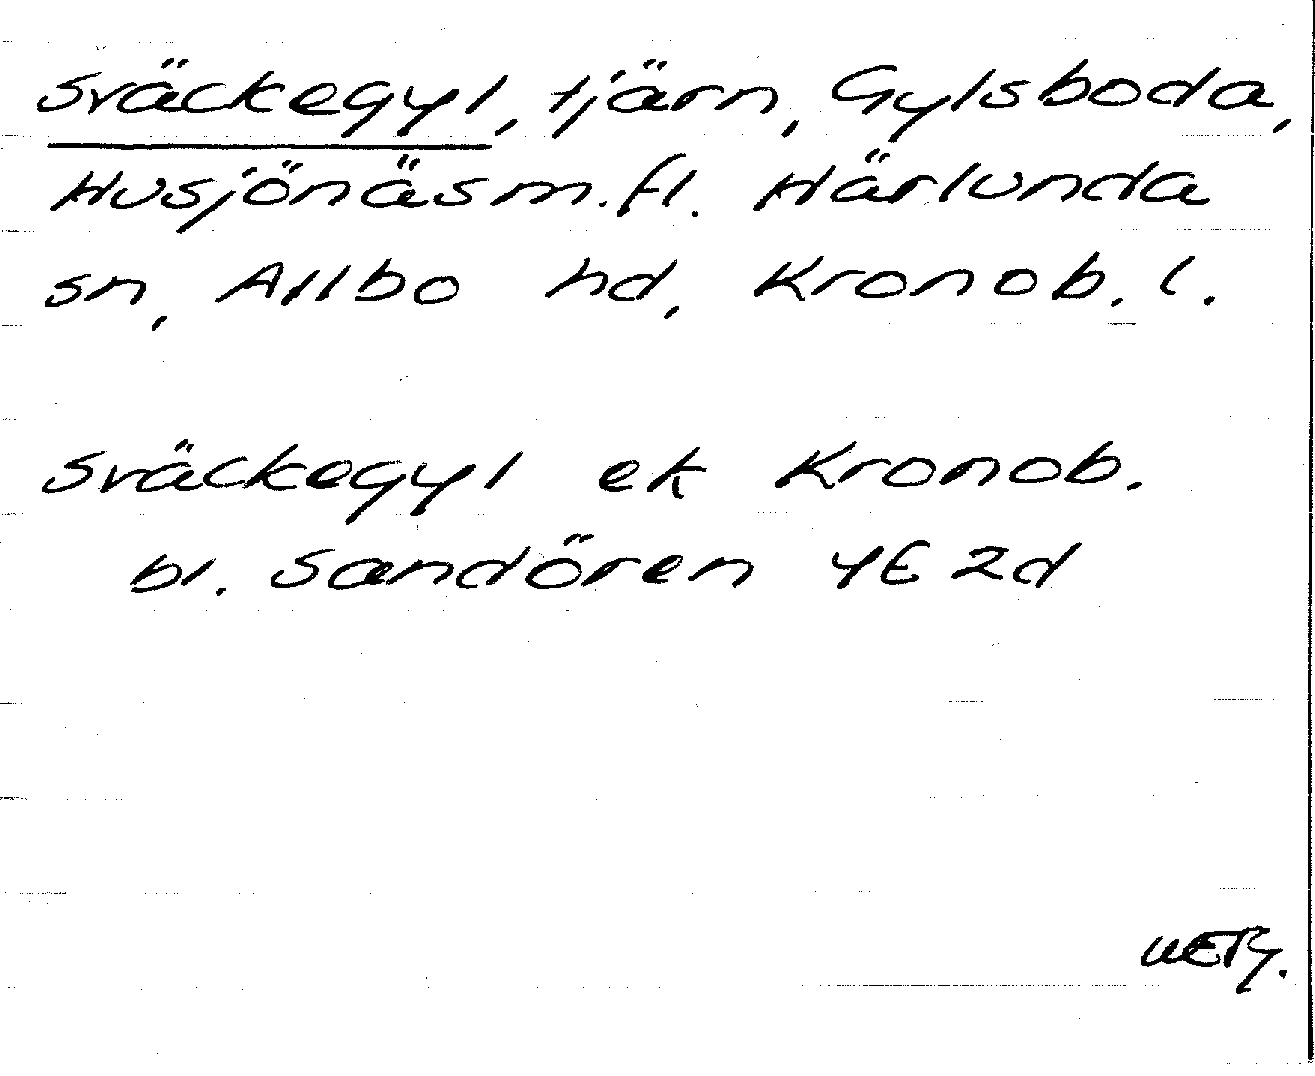 Sväckegyl, tjärn, Gylsboda,
Husjönäs m.fl. Härlunda
sn, Allbo hd, Kronob. l.
Sväckegyl ek Kronob.
bl. Sandören 4E 2d